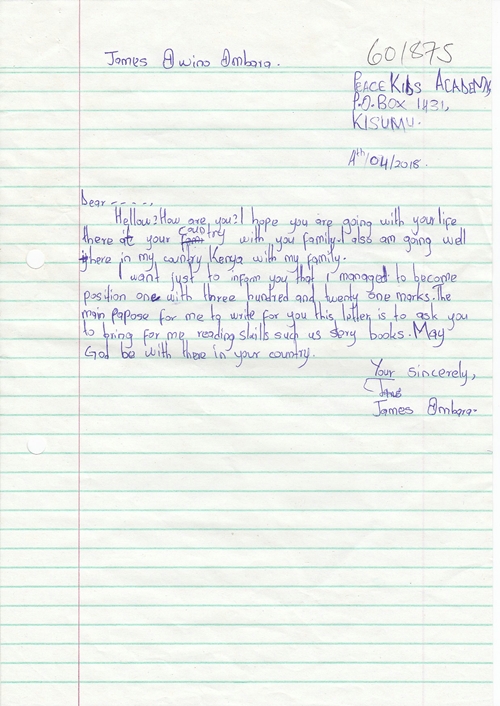 James Owino Ombara.
601875
PEACE KIDS ACADEMY
P.O. BOX 1431,
KISUMU.
4th/04/2018.
Dear -----,
Hellow? How are, you? I hope you are going with your life
country
there at your with you family. I also am going well
there in my country Kenya with my family.
I want just to inform you that I managed to become
position one with three hundred and twenty one marks. The
main papose for me to write for you this letter, is to ask you
to bring for me reading skills such us story books. May
God be with there in your country.
Your sincerely,
James Ombara.